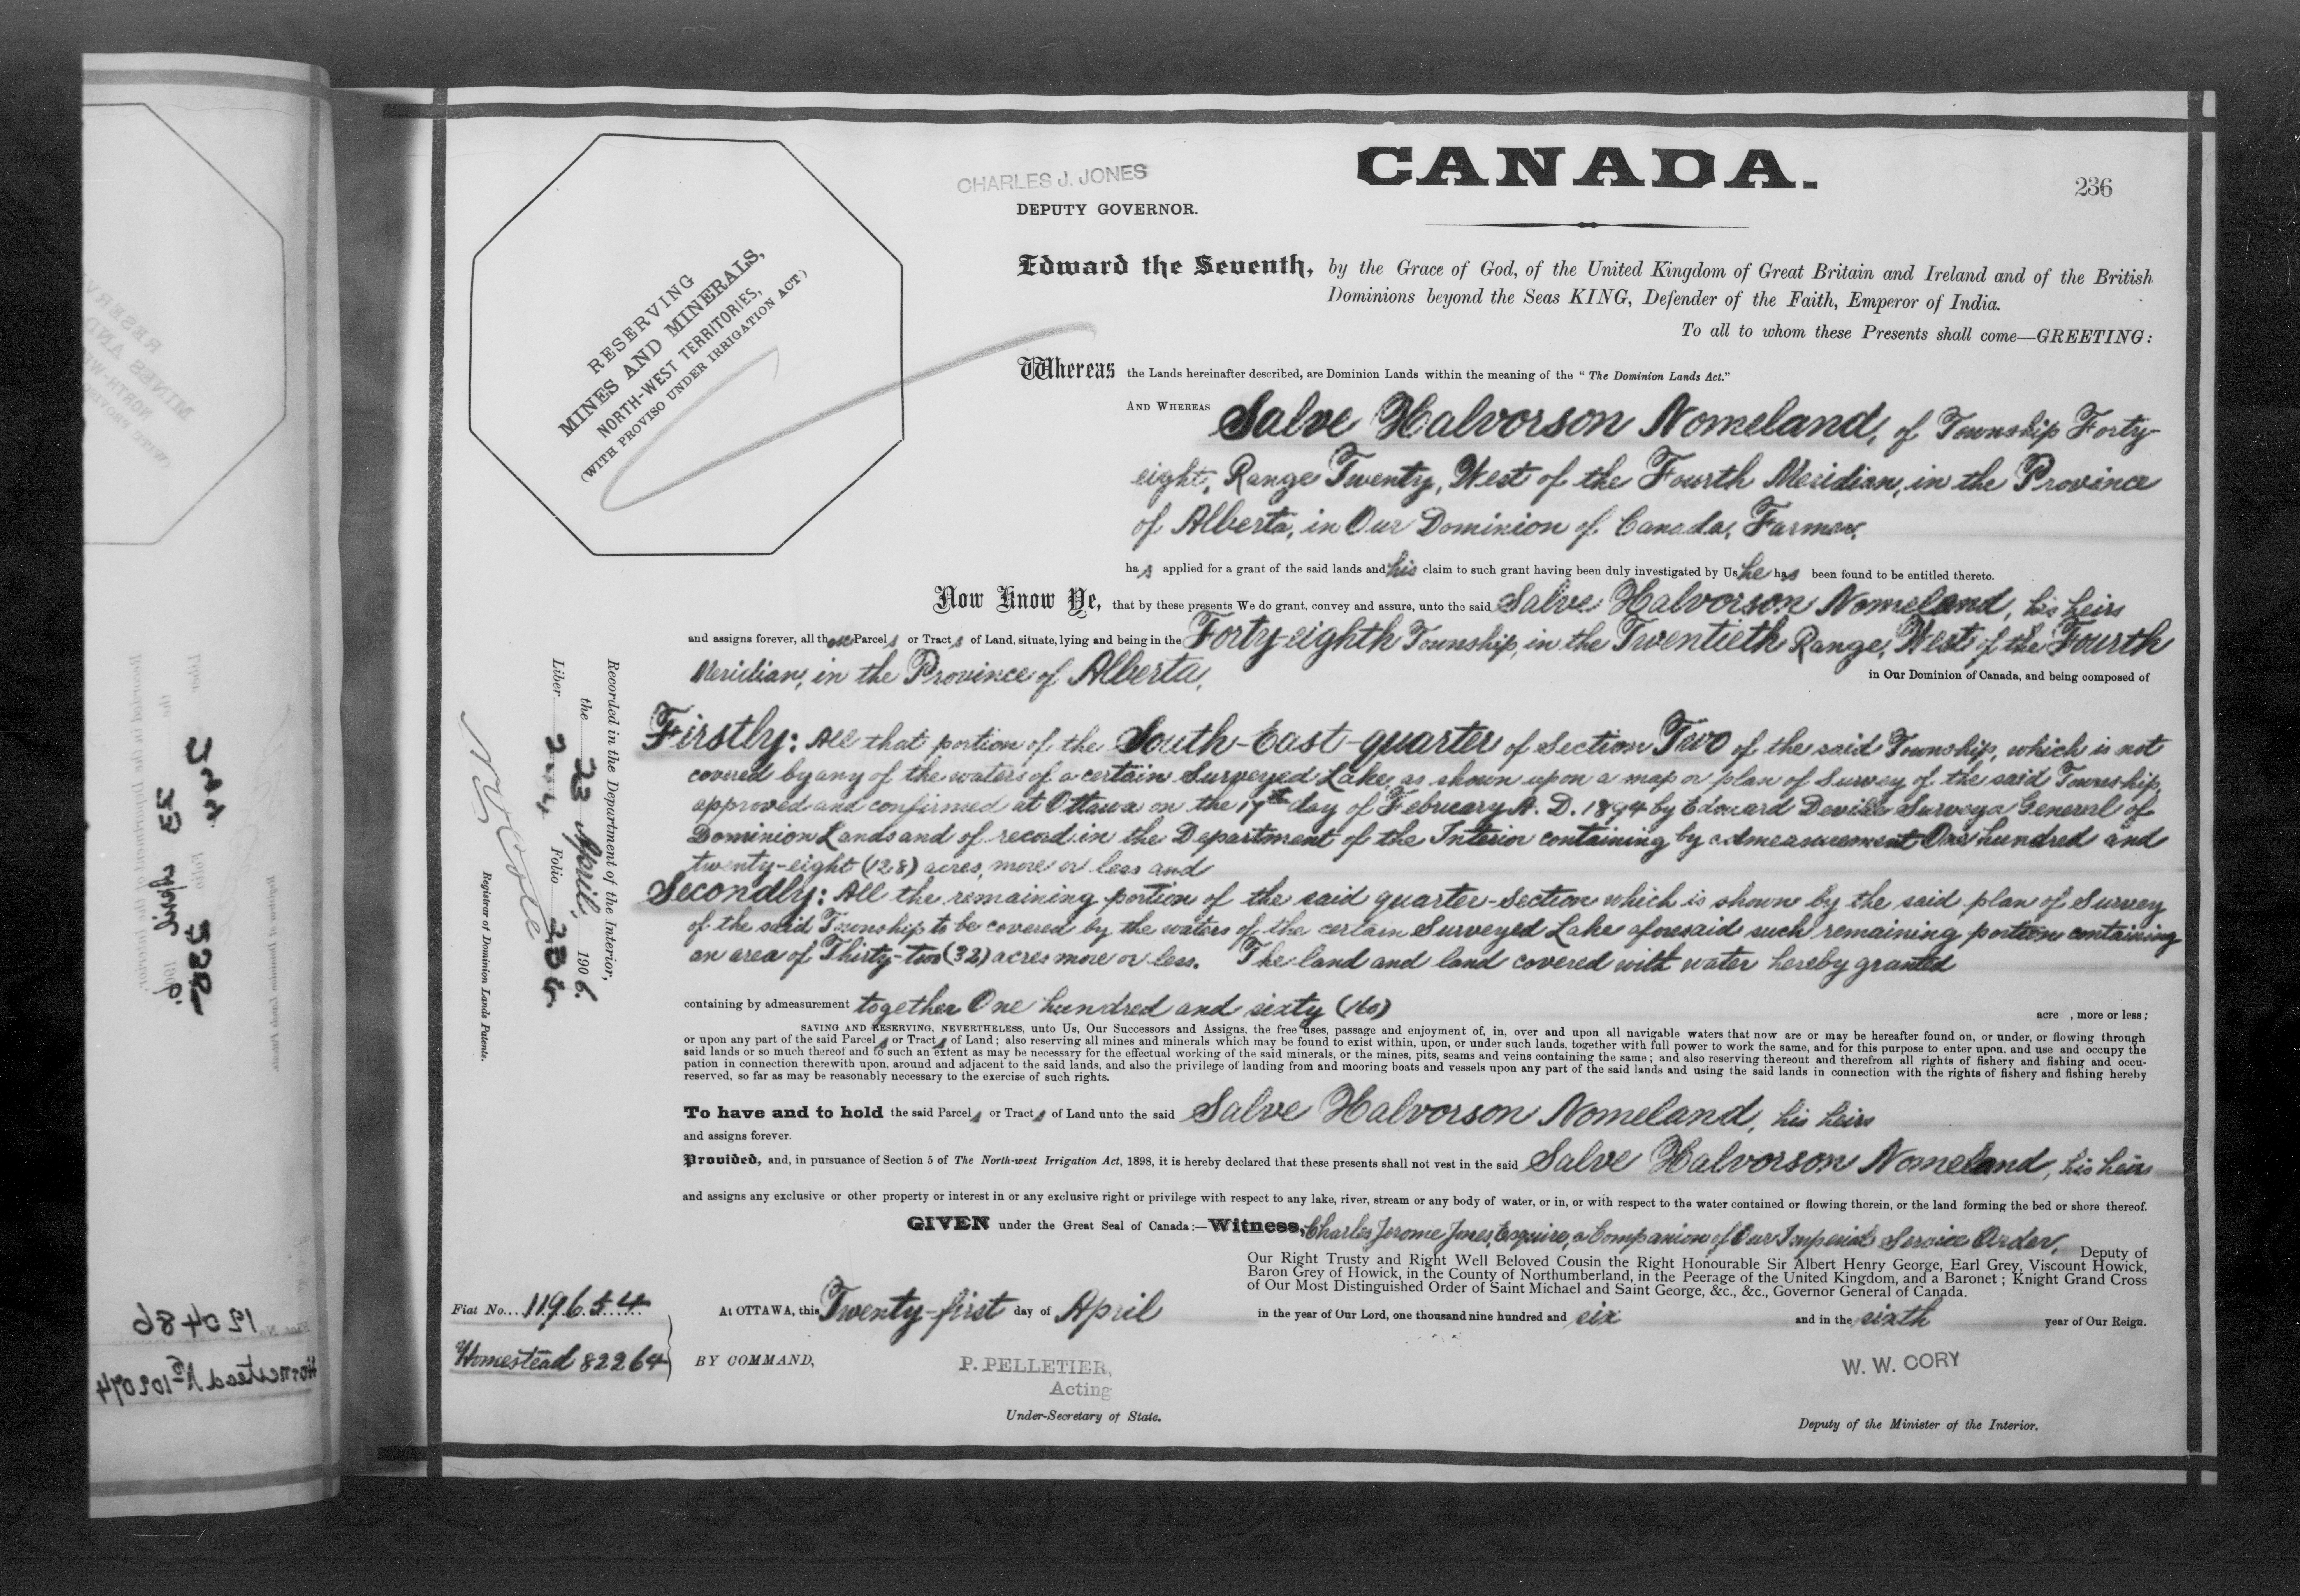 CHARLES J. JONES
DEPUTY GOVERNOR.
CANADA.
236
RESERVING
MINES AND MINERALS,
NORTH-WEST TERRITORIES,
(WITH PROVISO UNDER IRRIGATION ACT.)
Edward the Seventh, by the Grace of God, of the United Kingdom of Great Britain and Ireland and of the British
Dominions beyond the Seas KING, Defender of the Faith, Emperor of India.
To all to whom these Presents shall come—GREETING:
Whereas the Lands hereinafter described, are Dominion Lands within the meaning of the "The Dominion Lands Act."
AND WHEREAS Salve Halvorson Nomeland, of Township Forty-
eight, Range Twenty, West of the Fourth Meridian, in the Province
of Alberta, in Our Dominion of Canada, Farmer,
has applied for a grant of the said lands and his claim to such grant having been duly investigated by Us he has been found to be entitled thereto.
Now Know Ye, that by these presents We do grant, convey and assure, unto the said Salve Halvorson Nomeland, his heirs
and assigns forever, all those Parcels or Tracts of Land, situate, lying and being in the Forty-eighth Township, in the Twentieth Range, West of the Fourth
Meridian, in the Province of Alberta, in Our Dominion of Canada, and being composed of
Firstly: All that portion of the South-East-quarter of Section Two of the said Township, which is not
covered by any of the waters of a certain Surveyed Lake, as shown upon a map or plan of Survey of the said Township,
approved and confirmed at Ottawa on the 17th day of February A. D. 1894 by Edouard Deville Surveyor General of
Dominion Lands and of record in the Department of the Interior containing by admeasurement One hundred and
twenty-eight (128) acres, more or less and
Secondly: All the remaining portion of the said quarter-Section which is shown by the said plan of Survey
of the said Township to be covered by the waters of the certain Surveyed Lake aforesaid such remaining portion containing
an area of Thirty-two (32) acres more or less. The land and land covered with water hereby granted
containing by admeasurement together One hundred and sixty (160) acre , more or less;
SAVING AND RESERVING, NEVERTHELESS, unto Us, Our Successors and Assigns, the free uses, passage and enjoyment of, in, over and upon all navigable waters that now are or may be hereafter found on, or under, or flowing through
or upon any part of the said Parcels or Tracts of Land; also reserving all mines and minerals which may be found to exist within, upon, or under such lands, together with full power to work the same, and for this purpose to enter upon, and use and occupy the
said lands or so much thereof and to such an extent as may be necessary for the effectual working of the said minerals, or the mines, pits, seams and veins containing the same; and also reserving thereout and therefrom all rights of fishery and fishing and occu-
pation in connection therewith upon, around and adjacent to the said lands, and also the privilege of landing from and mooring boats and vessels upon any part of the said lands and using the said lands in connection with the rights of fishery and fishing hereby
reserved, so far as may be reasonably necessary to the exercise of such rights.
To have and to hold the said Parcels or Tracts of Land unto the said Salve Halvorson Nomeland, his heirs
and assigns forever.
Provided, and, in pursuance of Section 5 of The North-west Irrigation Act, 1898, it is hereby declared that these presents shall not vest in the said Salve Halvorson Nomeland, his heirs
and assigns any exclusive or other property or interest in or any exclusive right or privilege with respect to any lake, river, stream or any body of water, or in, or with respect to the water contained or flowing therein, or the land forming the bed or shore thereof.
GIVEN under the Great Seal of Canada:—Witness, Charles Jerome Jones, Esquire, a Companion of Our Imperial Service Order, Deputy of
Our Right Trusty and Right Well Beloved Cousin the Right Honourable Sir Albert Henry George, Earl Grey, Viscount Howick,
Baron Grey of Howick, in the County of Northumberland, in the Peerage of the United Kingdom, and a Baronet; Knight Grand Cross
of Our Most Distinguished Order of Saint Michael and Saint George, &c., &c., Governor General of Canada.
At OTTAWA, this Twenty-first day of April in the year of Our Lord, one thousand nine hundred and six and in the sixth year of Our Reign.
Fiat No. 119654
Homestead 82264
BY COMMAND,
P. PELLETIER,
Acting
Under-Secretary of State.
W. W. CORY
Deputy of the Minister of the Interior.
Recorded in the Department of the Interior,
the 23 April, 1906.
Liber Folio 236
Registrar of Dominion Lands Patents.
120486
Homestead No 102074